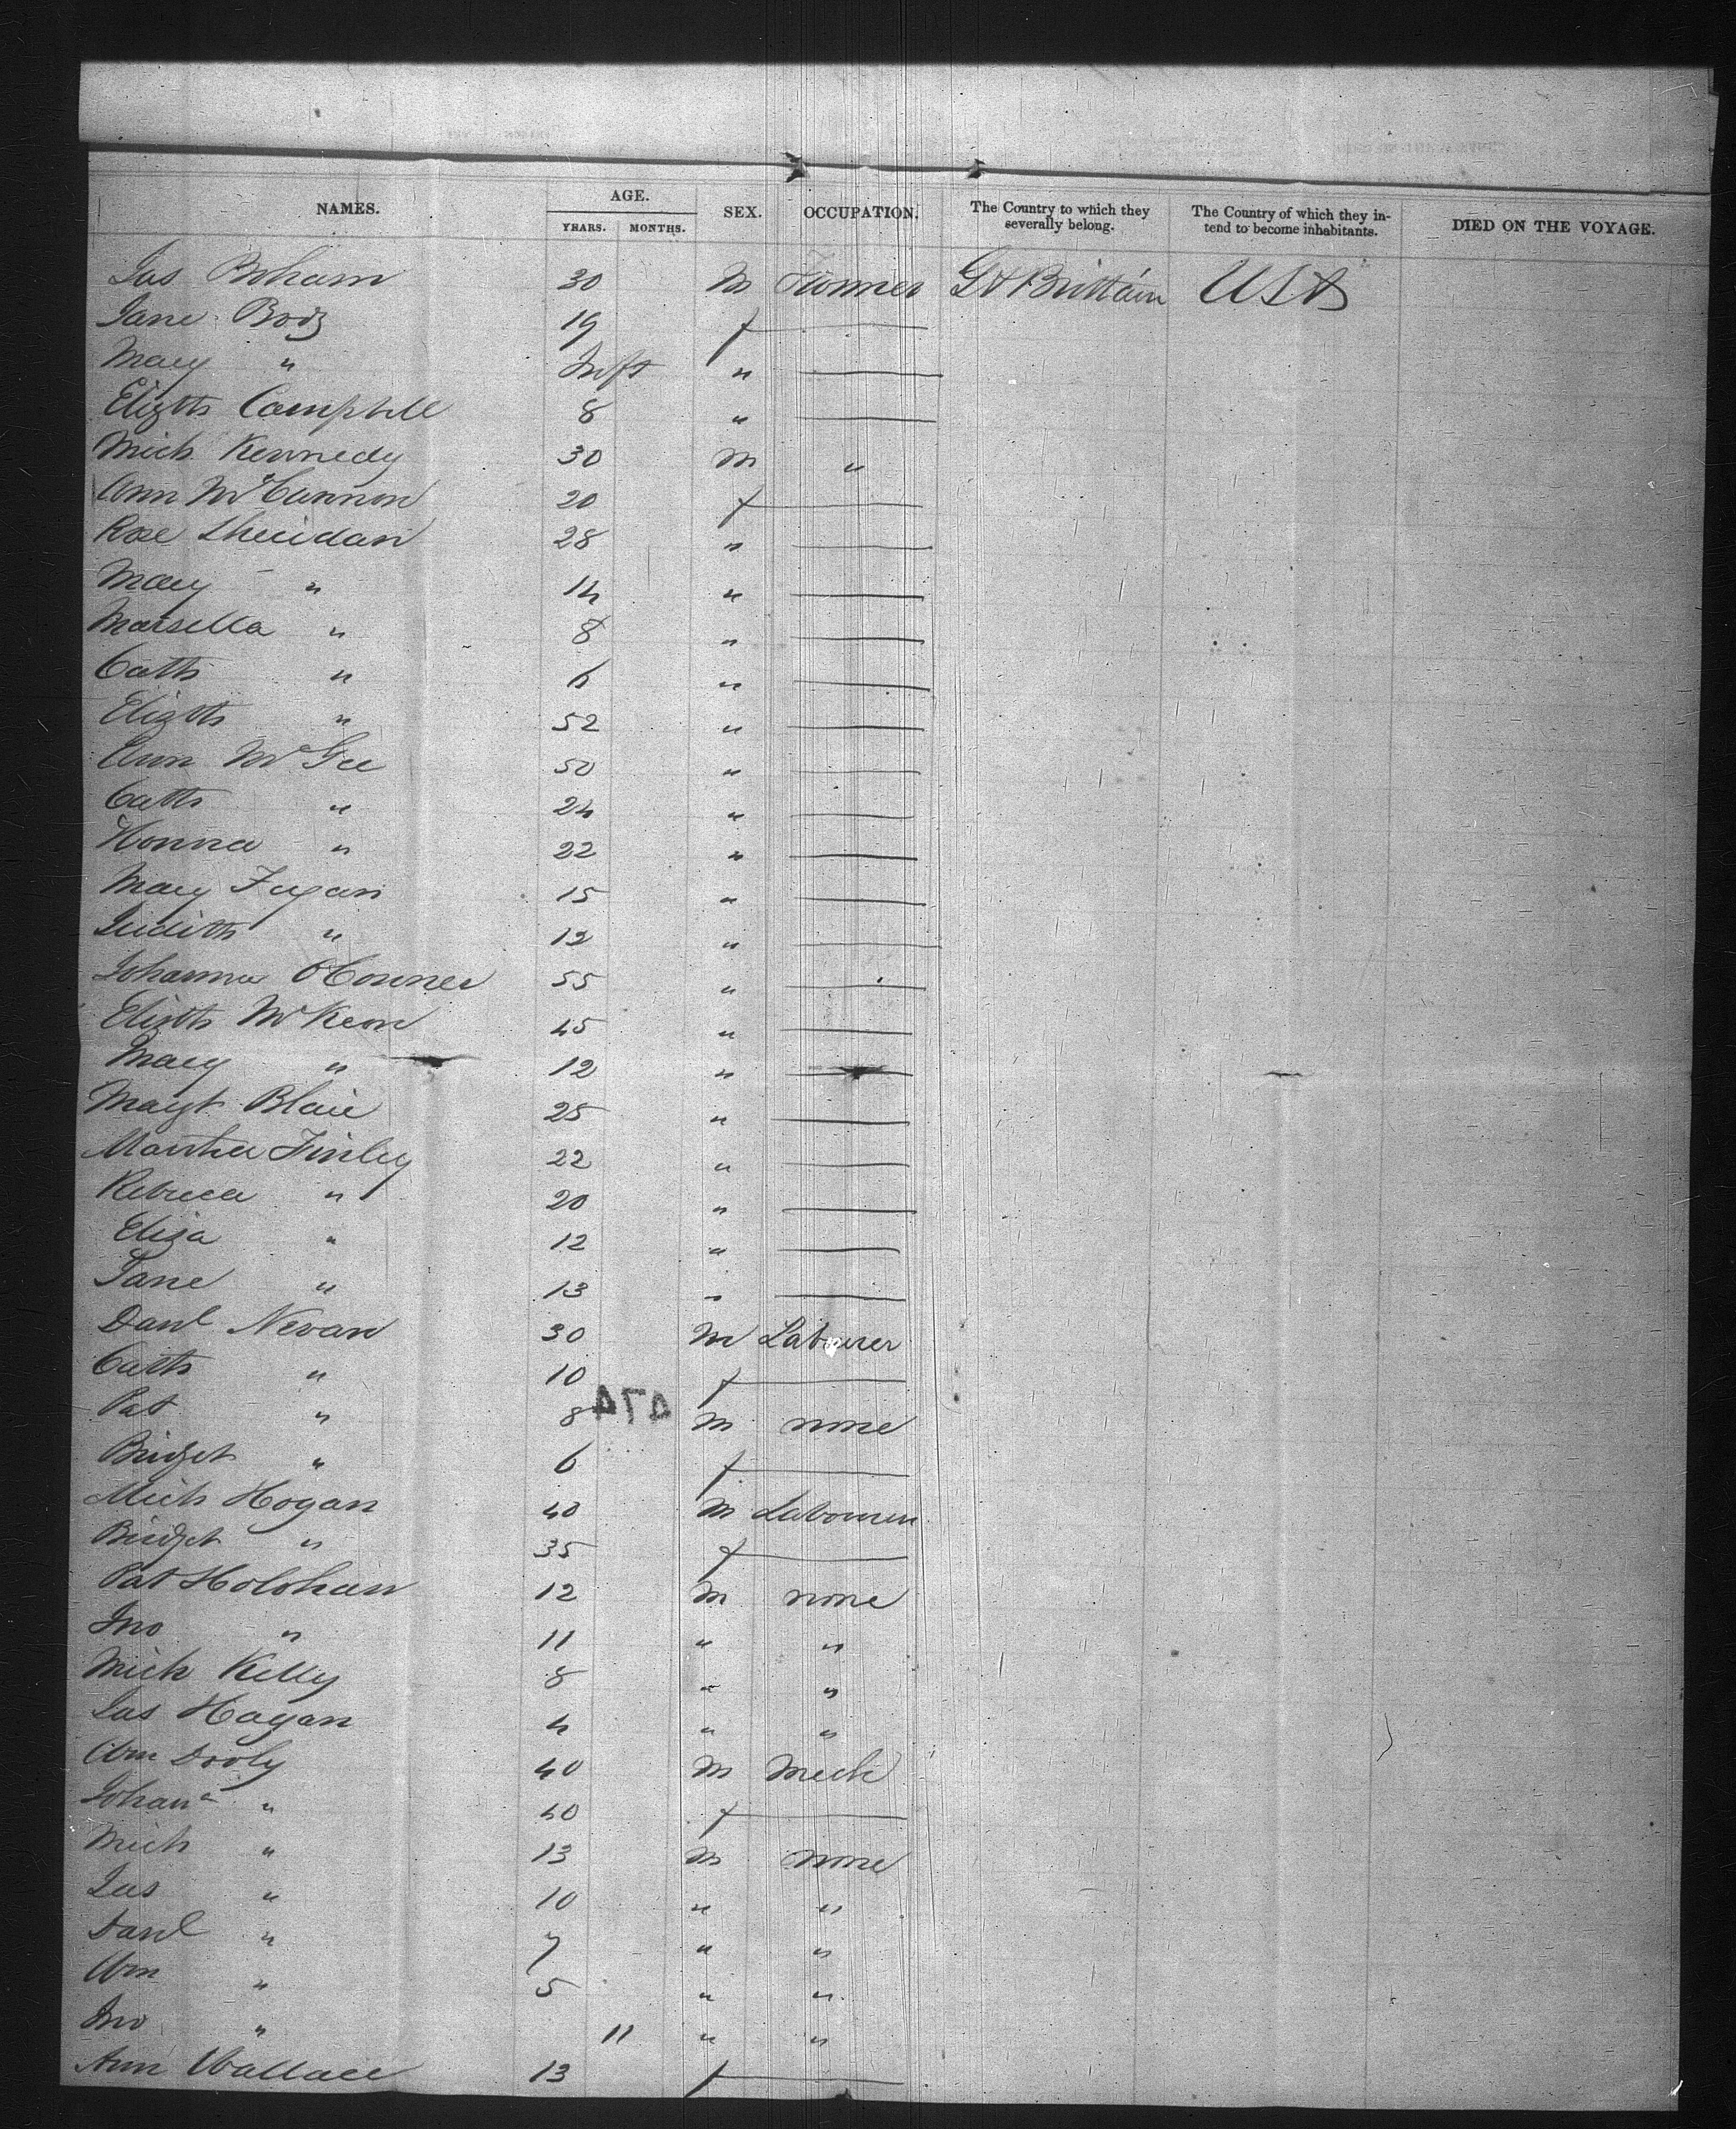 NAMES. AGE. SEX. OCCUPATION. The Country to which they severally belong. The Country of which they intend to become inhabitants. DIED ON THE VOYAGE.
YEARS. MONTHS.
Jas 30 M Farmer Gt Brittain USA
Jane 19 f
Mary " Inft "
Elizth Campbell 8 "
Mich Kennedy 30 M "
Ann McCannon 20 f
Rose Sheridan 28 "
Mary " 14 "
Marsella " 8 "
Cath " 6 "
Elizth " 52 "
Ann McGee 50 "
Cath " 24 "
Honna " 22 "
Mary Fegan 15 "
Judith " 12 "
Johanna OConner 55 "
Elizth McKeon 45 "
Mary " 12 "
Margt Blair 25 "
Martha Finley 22 "
Rebecca " 20 "
Eliza " 12 "
Jane " 13 "
Danl Nevan 30 M Labourer
Cath " 10 f
Pat " 8 M none
474
Bridget " 6 f
Mich Hogan 40 M Labourer
Bridget " 35 f
Pat Holohan 12 M none
Jno " 11 " "
Mich Kelly 8 " "
Jas Hogan 4 " "
Wm Dooly 40 M Mech
Johana " 40 f
Mich " 13 M none
Jas " 10 " "
Danl " 7 " "
Wm " 5 " "
Jno " 11 " "
Ann Wallace 13 f